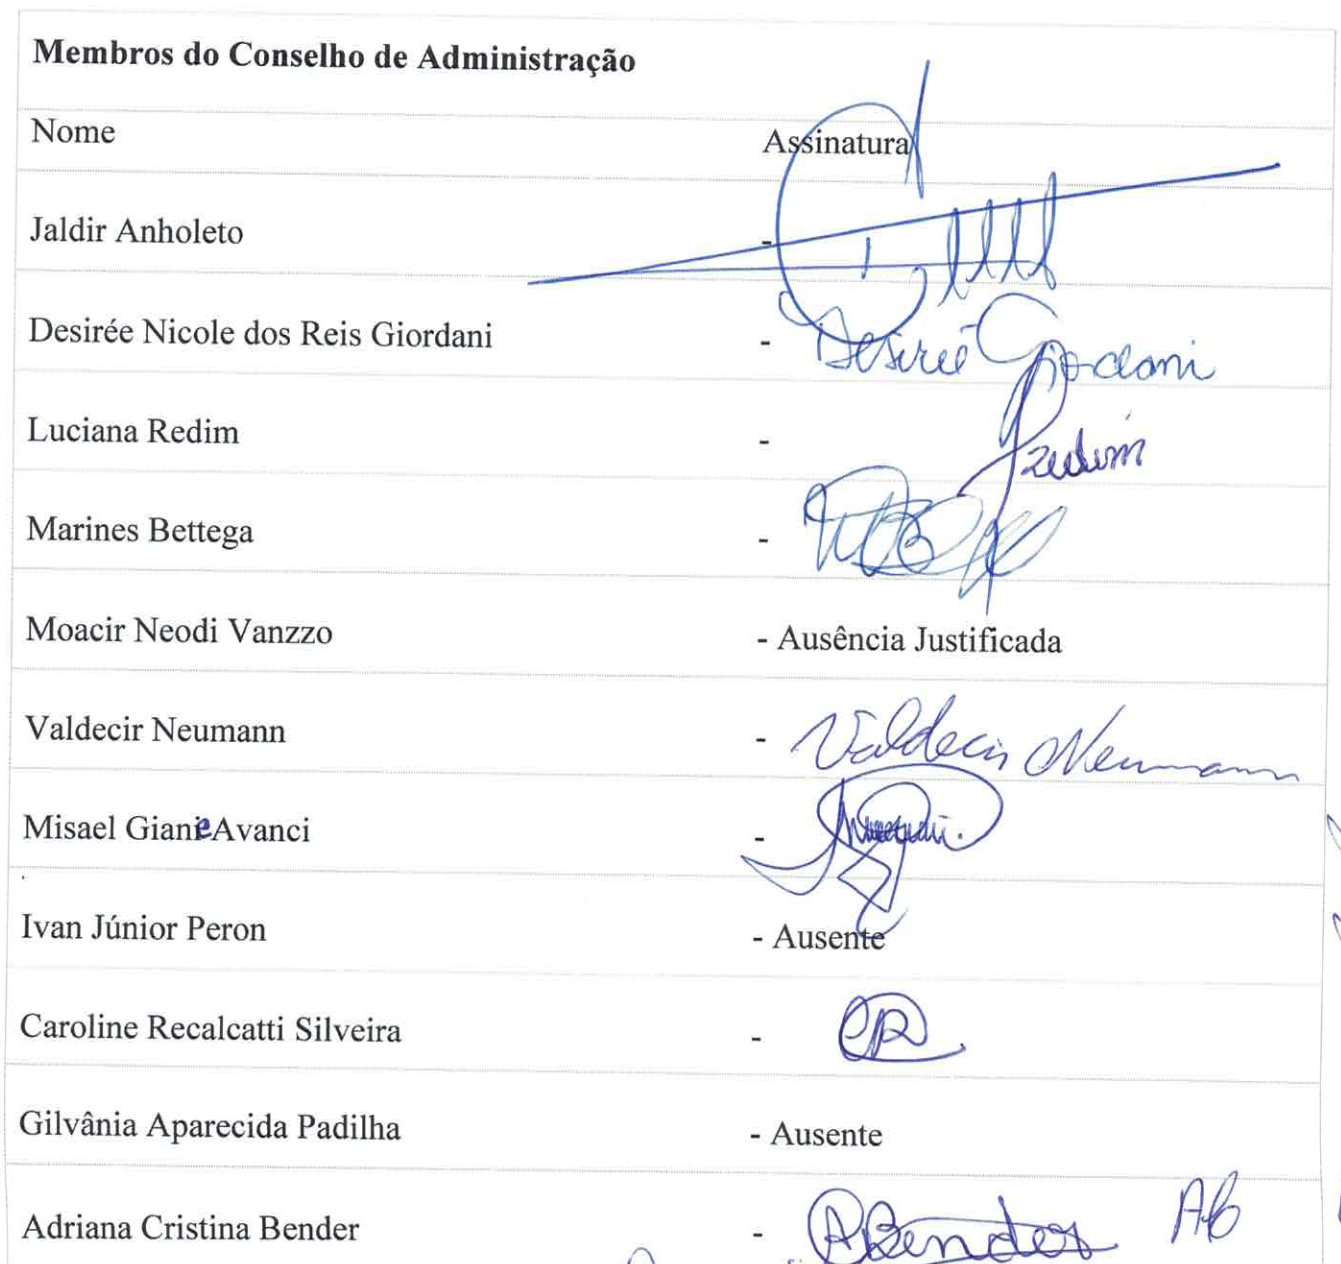 Membros do Conselho de Administração
Nome Assinatura
Jaldir Anholeto -
Desirée Nicole dos Reis Giordani - Desireé Giordani
Luciana Redim - Redim
Marines Bettega -
Moacir Neodi Vanzzo - Ausência Justificada
Valdecir Neumann - Valdecir Neumann
Misael Giane Avanci -
Ivan Júnior Peron - Ausente
Caroline Recalcatti Silveira - CR
Gilvânia Aparecida Padilha - Ausente
Adriana Cristina Bender - ABender AB